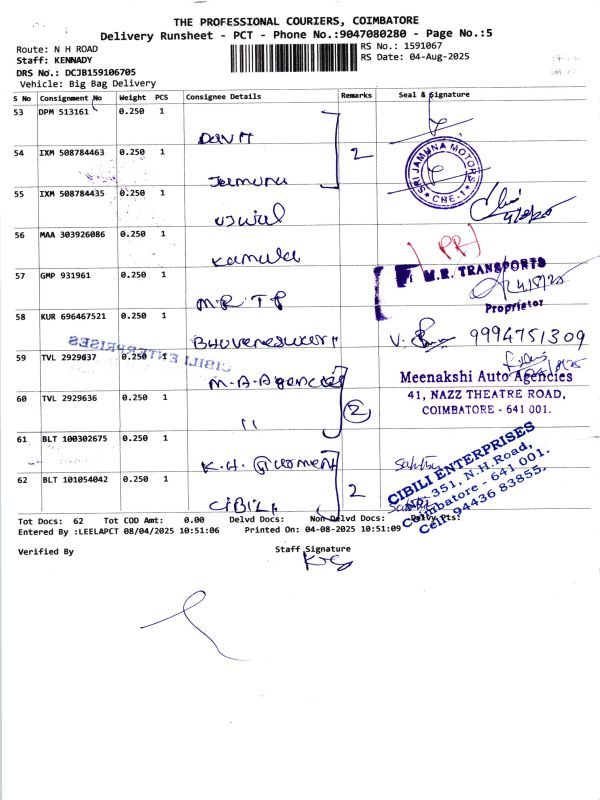 THE PROFESSIONAL COURIERS, COIMBATORE
Delivery Runsheet - PCT - Phone No.:9047080280 - Page No.:5
Route: N H ROAD
RS No.: 1591067
Staff: KENNADY
RS Date: 04-Aug-2025
DRS No.: DCJB159106705
Vehicle: Big Bag Delivery
S No Consignment No Weight PCS Consignee Details Remarks Seal & Signature
53 DPM 513161 0.250 1
54 IXM 508784463 0.250 1 2
SRI JAMUNA MOTORS
CBE-1
55 IXM 508784435 0.250 1
4/8/25
56 MAA 303926086 0.250 1 Kamala
57 GMP 931961 0.250 1 M.R.TP
M.R. TRANSPORTS
4/8/25
Proprietor
58 KUR 696467521 0.250 1 BHUVENESWARI V. 9994751309
CIBILI ENTERPRISES
59 TVL 2929037 0.250 1 M.A.Agencies
Meenakshi Auto Agencies
41, NAZZ THEATRE ROAD,
COIMBATORE - 641 001.
60 TVL 2929636 0.250 1 " 2
61 BLT 100302675 0.250 1 K.H.
62 BLT 101054042 0.250 1 CIBILI 2
CIBILI ENTERPRISES
No. 351, N.H.Road,
Coimbatore - 641 001.
Cell: 94436 83855.
Tot Docs: 62 Tot COD Amt: 0.00 Delvd Docs: Non Delvd Docs: Delvy Pts:
Entered By :LEELAPCT 08/04/2025 10:51:06 Printed On: 04-08-2025 10:51:09
Verified By Staff Signature